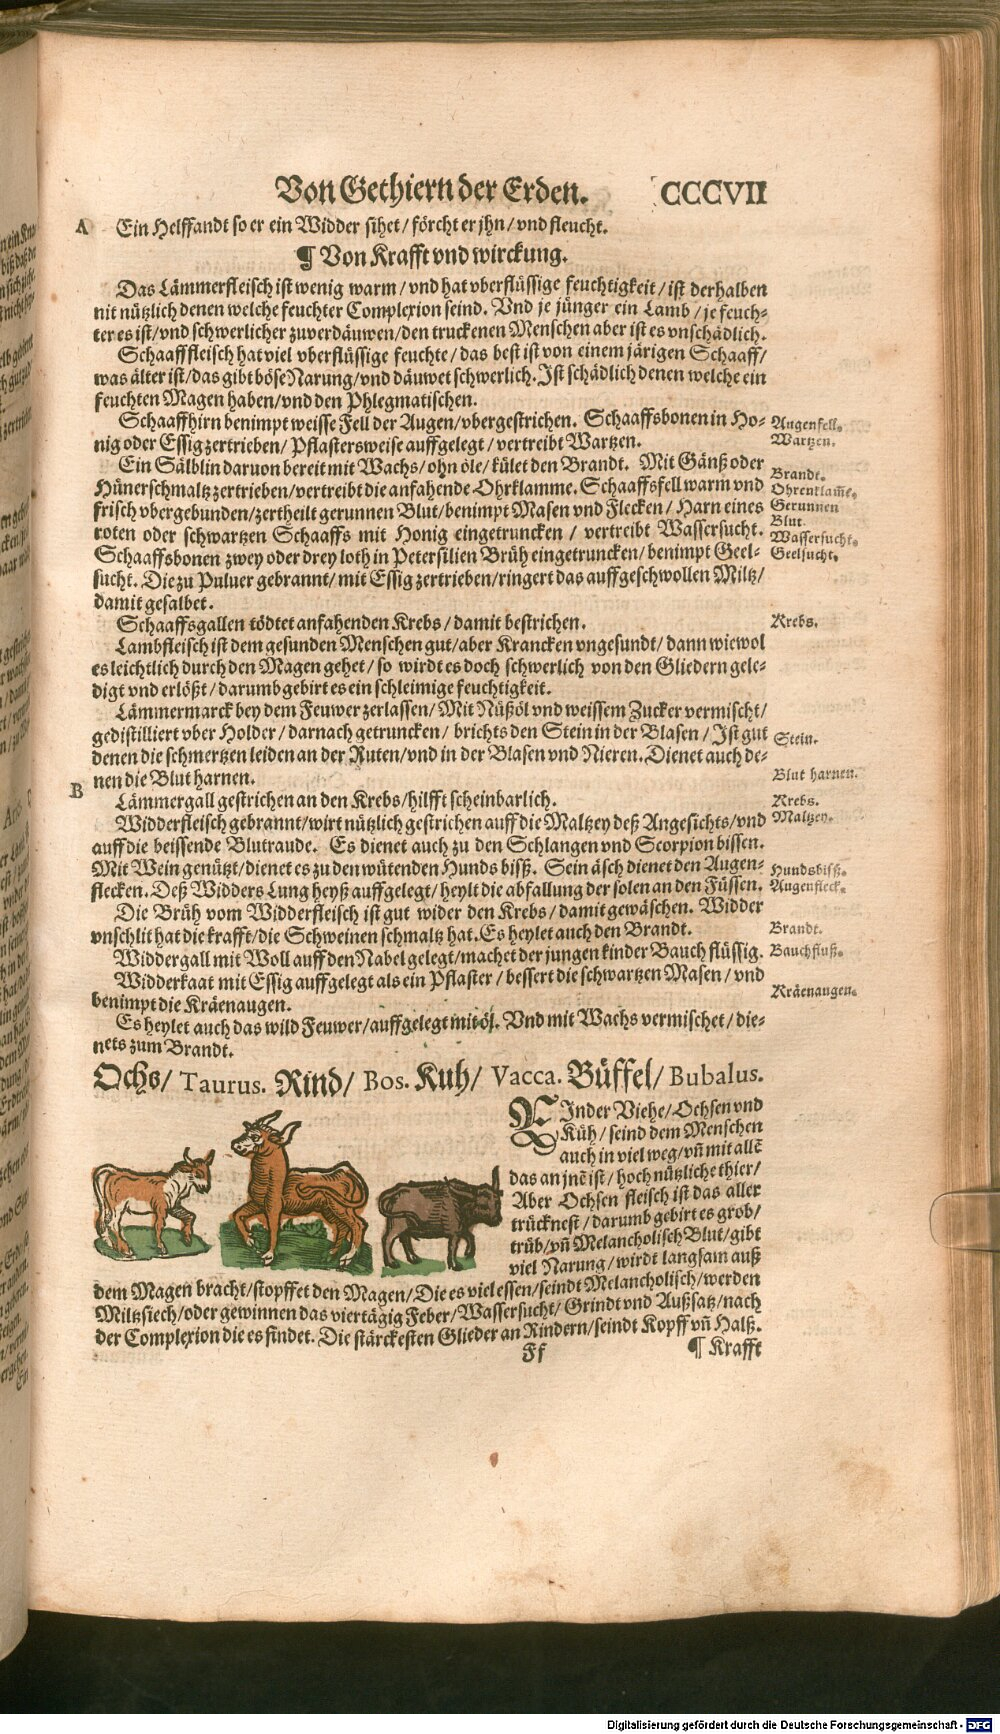 Von Gethiern der Erden. CCCVII
A Ein Helffandt so er ein Widder sihet / förcht er jhn / vnd fleucht.
¶ Von Krafft vnd wirckung.
Das Lämmerfleisch ist wenig warm / vnd hat vberflüssige feuchtigkeit / ist derhalben
nit nützlich denen welche feuchter Complexion seind. Vnd je jünger ein Lamb / je feuch-
ter es ist / vnd schwerlicher zuverdäuwen / den truckenen Menschen aber ist es vnschädlich.
Schaaffleisch hat viel vberflüssige feuchte / das best ist von einem järigen Schaaff /
was älter ist / das gibt böse Narung / vnd däuwet schwerlich. Ist schädlich denen welche ein
feuchten Magen haben / vnd den Phlegmatischen.
Schaaffhirn benimpt weisse Fell der Augen / vbergestrichen. Schaaffsbonen in Ho-
nig oder Essig zertrieben / Pflastersweise auffgelegt / vertreibt Wartzen.
Augenfell.
Wartzen.
Ein Sälblin daruon bereit mit Wachs / ohn öle / kület den Brandt. Mit Gänß oder
Hünerschmaltz zertrieben / vertreibt die anfahende Ohrklamme. Schaaffsfell warm vnd
frisch vbergebunden / zertheilt gerunnen Blut / benimpt Masen vnd Flecken / Harn eines
roten oder schwartzen Schaaffs mit Honig eingetruncken / vertreibt Wassersucht.
Schaaffsbonen zwey oder drey loth in Petersilien Brüh eingetruncken / benimpt Geel-
sucht. Die zu Puluer gebrannt / mit Essig zertrieben / ringert das auffgeschwollen Miltz /
damit gesalbet.
Brandt.
Ohrenklam̃e.
Gerunnen
Blut.
Wassersucht.
Geelsucht.
Schaaffsgallen tödtet anfahenden Krebs / damit bestrichen.
Krebs.
Lambfleisch ist dem gesunden Menschen gut / aber Krancken vngesundt / dann wiewol
es leichtlich durch den Magen gehet / so wirdt es doch schwerlich von den Gliedern gele-
digt vnd erlößt / darumb gebirt es ein schleimige feuchtigkeit.
Lämmermarck bey dem Feuwer zerlassen / Mit Nüßöl vnd weissem Zucker vermischt /
gedistilliert vber Holder / darnach getruncken / brichts den Stein in der Blasen / Ist gut
denen die schmertzen leiden an der Ruten / vnd in der Blasen vnd Nieren. Dienet auch de-
nen die Blut harnen.
Stein.
Blut harnen.
B Lämmergall gestrichen an den Krebs / hilfft scheinbarlich.
Krebs.
Widderfleisch gebrannt / wirt nützlich gestrichen auff die Maltzey deß Angesichts / vnd
auff die beissende Blutraude. Es dienet auch zu den Schlangen vnd Scorpion bissen.
Mit Wein genützt / dienet es zu den wütenden Hunds bisß. Sein äsch dienet den Augen-
flecken. Deß Widders Lung heyß auffgelegt / heylt die abfallung der solen an den Füssen.
Maltzey.
Hundsbisß.
Augenfleck.
Die Brüh vom Widderfleisch ist gut wider den Krebs / damit gewäschen. Widder
vnschlit hat die krafft / die Schweinen schmaltz hat. Es heylet auch den Brandt.
Brandt.
Widdergall mit Woll auff den Nabel gelegt / machet der jungen kinder Bauch flüssig.
Bauchfluß.
Widderkaat mit Essig auffgelegt als ein Pflaster / bessert die schwartzen Masen / vnd
benimpt die Kräenaugen.
Kräenaugen.
Es heylet auch das wild Feuwer / auffgelegt mit öl. Vnd mit Wachs vermischet / die-
nets zum Brandt.
Ochs / Taurus. Rind / Bos. Kuh / Vacca. Büffel / Bubalus.
RInder Viehe / Ochsen vnd
Küh / seind dem Menschen
auch in viel weg / vñ mit allẽ
das an jnẽ ist / hoch nützliche thier /
Aber Ochsen fleisch ist das aller
trücknest / darumb gebirt es grob /
trüb / vñ Melancholisch Blut / gibt
viel Narung / wirdt langsam auß
dem Magen bracht / stopffet den Magen / Die es viel essen / seindt Melancholisch / werden
Miltzsiech / oder gewinnen das viertägig Feber / Wassersucht / Grindt vnd Außsatz / nach
der Complexion die es findet. Die stärckesten Glieder an Rindern / seindt Kopff vñ Halß.
Ff ¶ Krafft
Digitalisierung gefördert durch die Deutsche Forschungsgemeinschaft - DFG